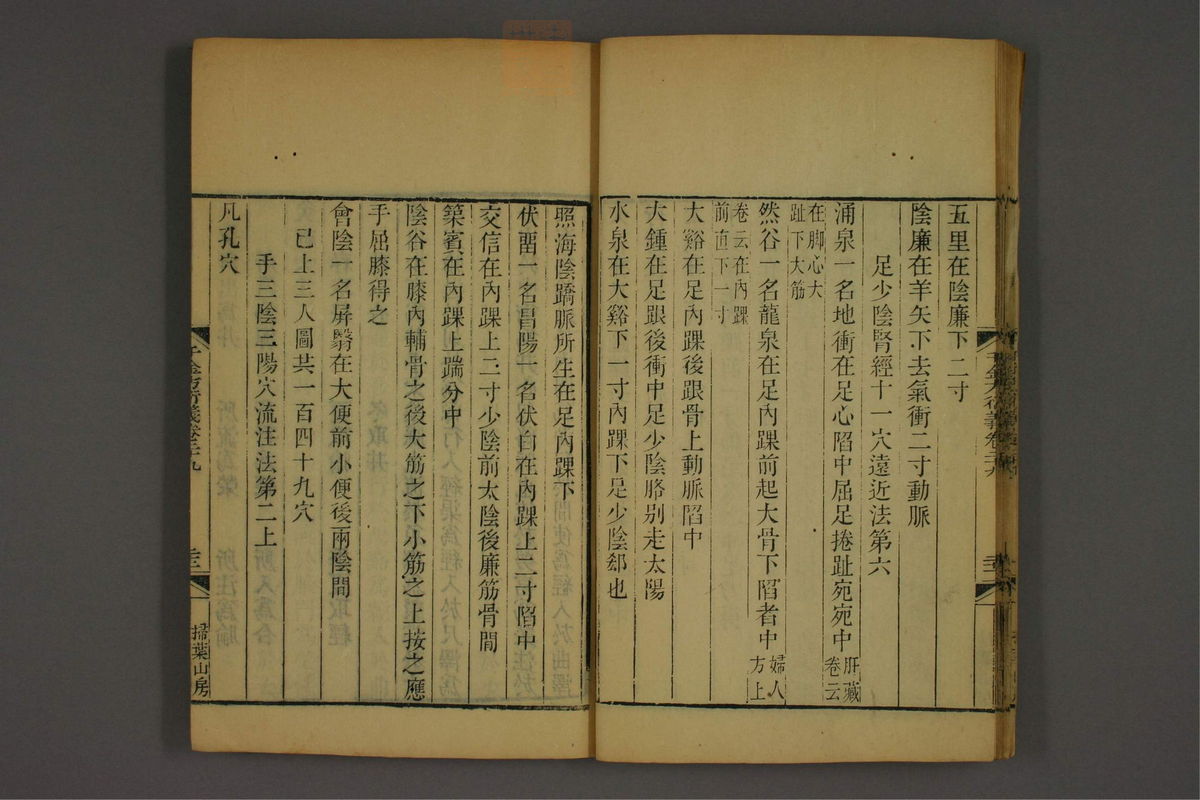 五里在陰廉下二寸
陰廉在羊矢下去氣衝二寸動脈
足少陰腎經十一穴遠近法第六
涌泉一名地衝在足心陷中屈足捲趾宛宛中肝藏卷云
在脚心大趾下大筋
然谷一名龍泉在足內踝前起大骨下陷者中婦人方上
卷云在內踝前直下一寸
大谿在足內踝後跟骨上動脈陷中
大鍾在足跟後衝中足少陰胳别走太陽
水泉在大谿下一寸內踝下是少陰郄也
照海陰蹻脈所生在足內踝下
伏畱一名昌陽一名伏白在內踝上二寸陷中
交信在內踝上二寸少陰前太陰後廉筋骨間
築賓在內踝上踹分中
陰谷在膝內輔骨之後大筋之下小筋之上按之應
手屈膝得之
會陰一名屏翳在大便前小便後兩陰間
已上三人圖共一百四十九穴
手三陰三陽穴流注法第二上
凡孔穴
千金方衍義卷二十九
三三
掃葉山房